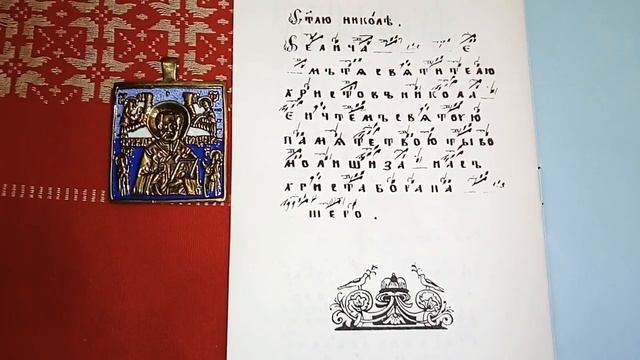 Ст҃лю нико́лѣ.
Велича е
мътѧ свѧтителю
христовъ никола
е и чтемъ свѧтѹю
памѧте твою ты бо
молиши за насъ
христа бога на
шего.